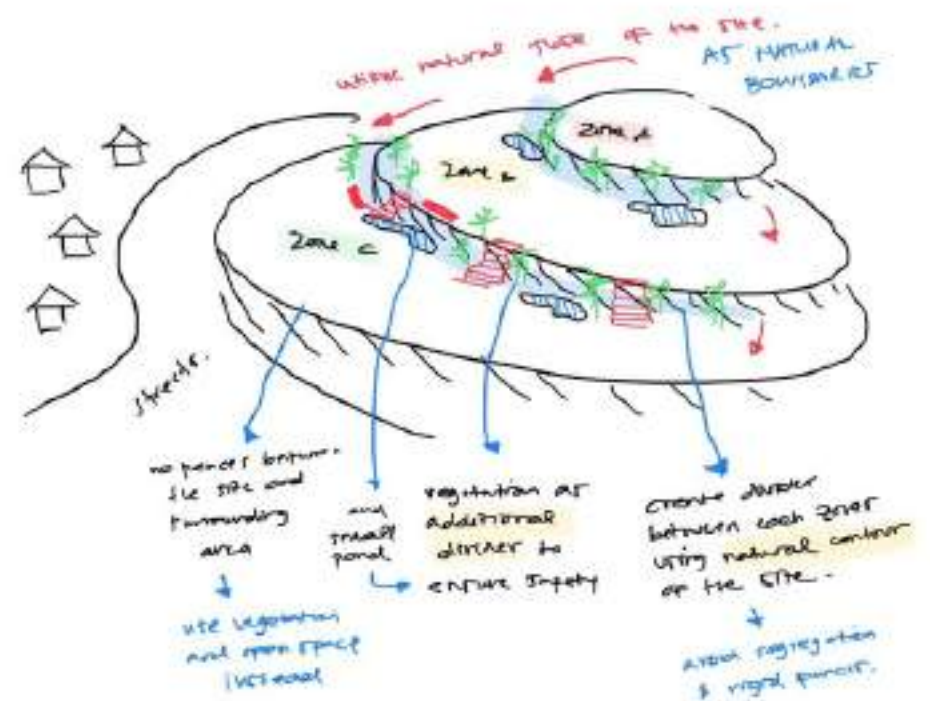 utilise natural of the site.
AS NATURAL
BOUNDARIES
Zone A
Zone B
Zone C
streets.
no fences between
the site and
surrounding
area
use vegetation
and open space
instead
and
small
pond
vegetation as
additional
divider to
ensure safety
create divider
between each zones
using natural contour
of the site.
avoid segregation
& rigid fences.